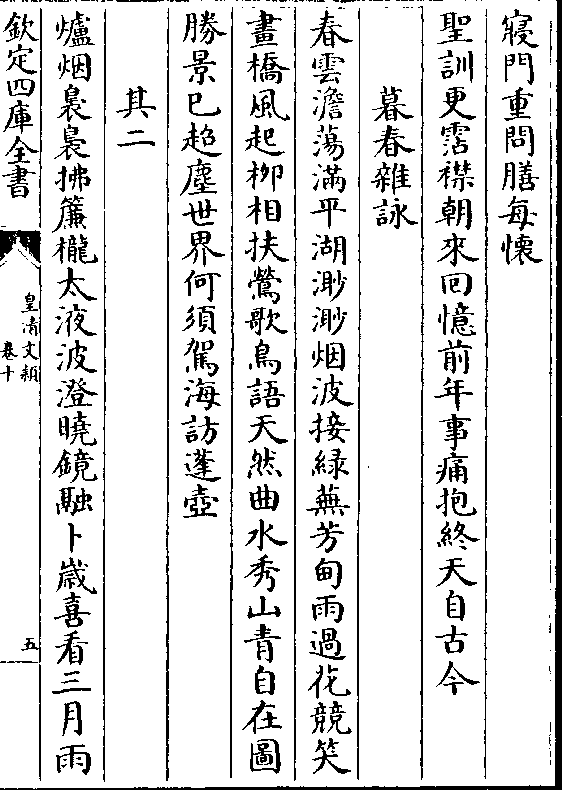 寢門重問膳每懷
聖訓更霑襟朝來回憶前年事痛抱終天自古今
暮春雜詠
春雲澹蕩滿平湖渺渺烟波接緑蕪芳甸雨過花競笑
畫橋風起栁相扶鶯歌鳥語天然曲水秀山青自在圖
勝景已超塵世界何須駕海訪蓬壺
其二
爐烟裊裊拂簾櫳太液波澄曉鏡融卜嵗喜看三月雨
欽定四庫全書
皇清文穎
卷十
五